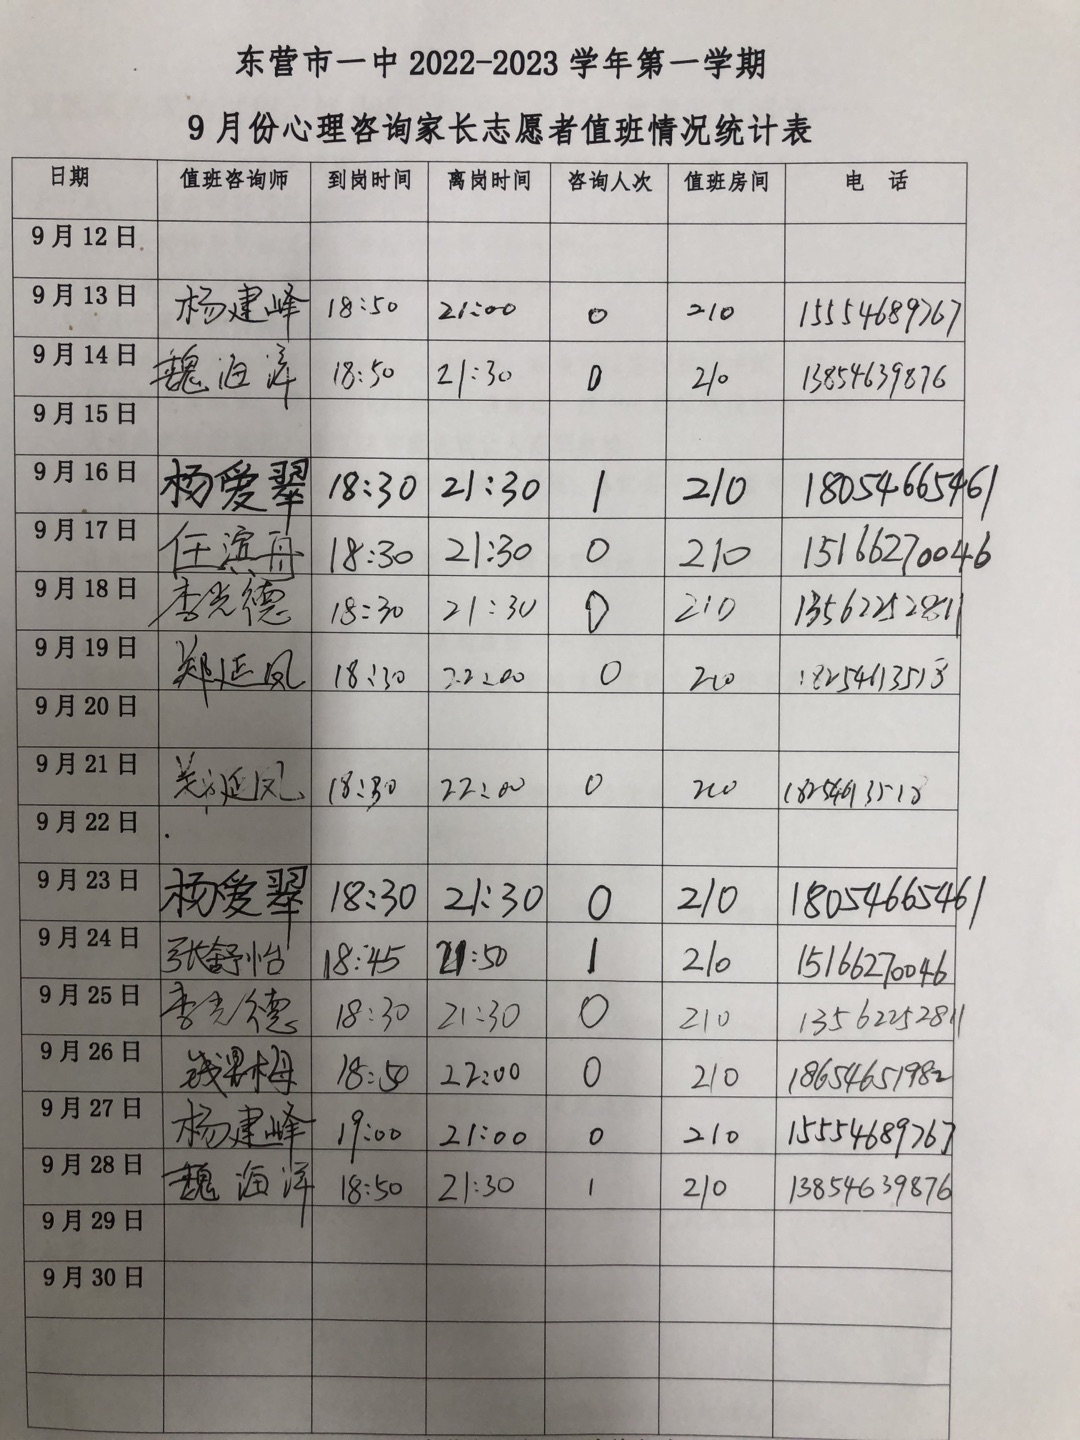 东营市一中 2022-2023 学年第一学期
9 月份心理咨询家长志愿者值班情况统计表
日期 值班咨询师 到岗时间 离岗时间 咨询人次 值班房间 电 话
9 月 12 日
9 月 13 日 杨建峰 18:50 21:00 0 210 15554689767
9 月 14 日 魏海洋 18:50 21:30 0 210 13854639876
9 月 15 日
9 月 16 日 杨爱翠 18:30 21:30 1 210 18054665461
9 月 17 日 任滨舟 18:30 21:30 0 210 15166270046
9 月 18 日 李光德 18:30 21:30 0 210 13562252811
9 月 19 日 郑延凤 18:30 22:00 0 210 18254613518
9 月 20 日
9 月 21 日 郑延凤 18:30 22:00 0 210 18254613518
9 月 22 日
9 月 23 日 杨爱翠 18:30 21:30 0 210 18054665461
9 月 24 日 张舒怡 18:45 21:50 1 210 15166270046
9 月 25 日 李光德 18:30 21:30 0 210 13562252811
9 月 26 日 18:50 22:00 0 210 18654651982
9 月 27 日 杨建峰 19:00 21:00 0 210 15554689767
9 月 28 日 魏海洋 18:50 21:30 1 210 13854639876
9 月 29 日
9 月 30 日